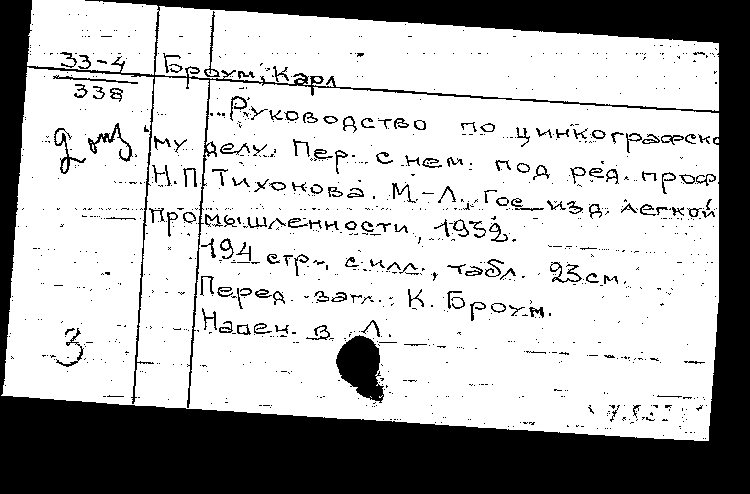 33-4
338
Брохм, Карл
...Руководство по цинкографско
му делу. Пер. с нем. под ред. проф.
Н.П. Тихонова. М.-Л., Гос. изд. легкой
промышленности, 1932.
194 стр., с илл., табл. 23 см.
Перед загл.: К. Брохм.
Напеч. в Л.
3